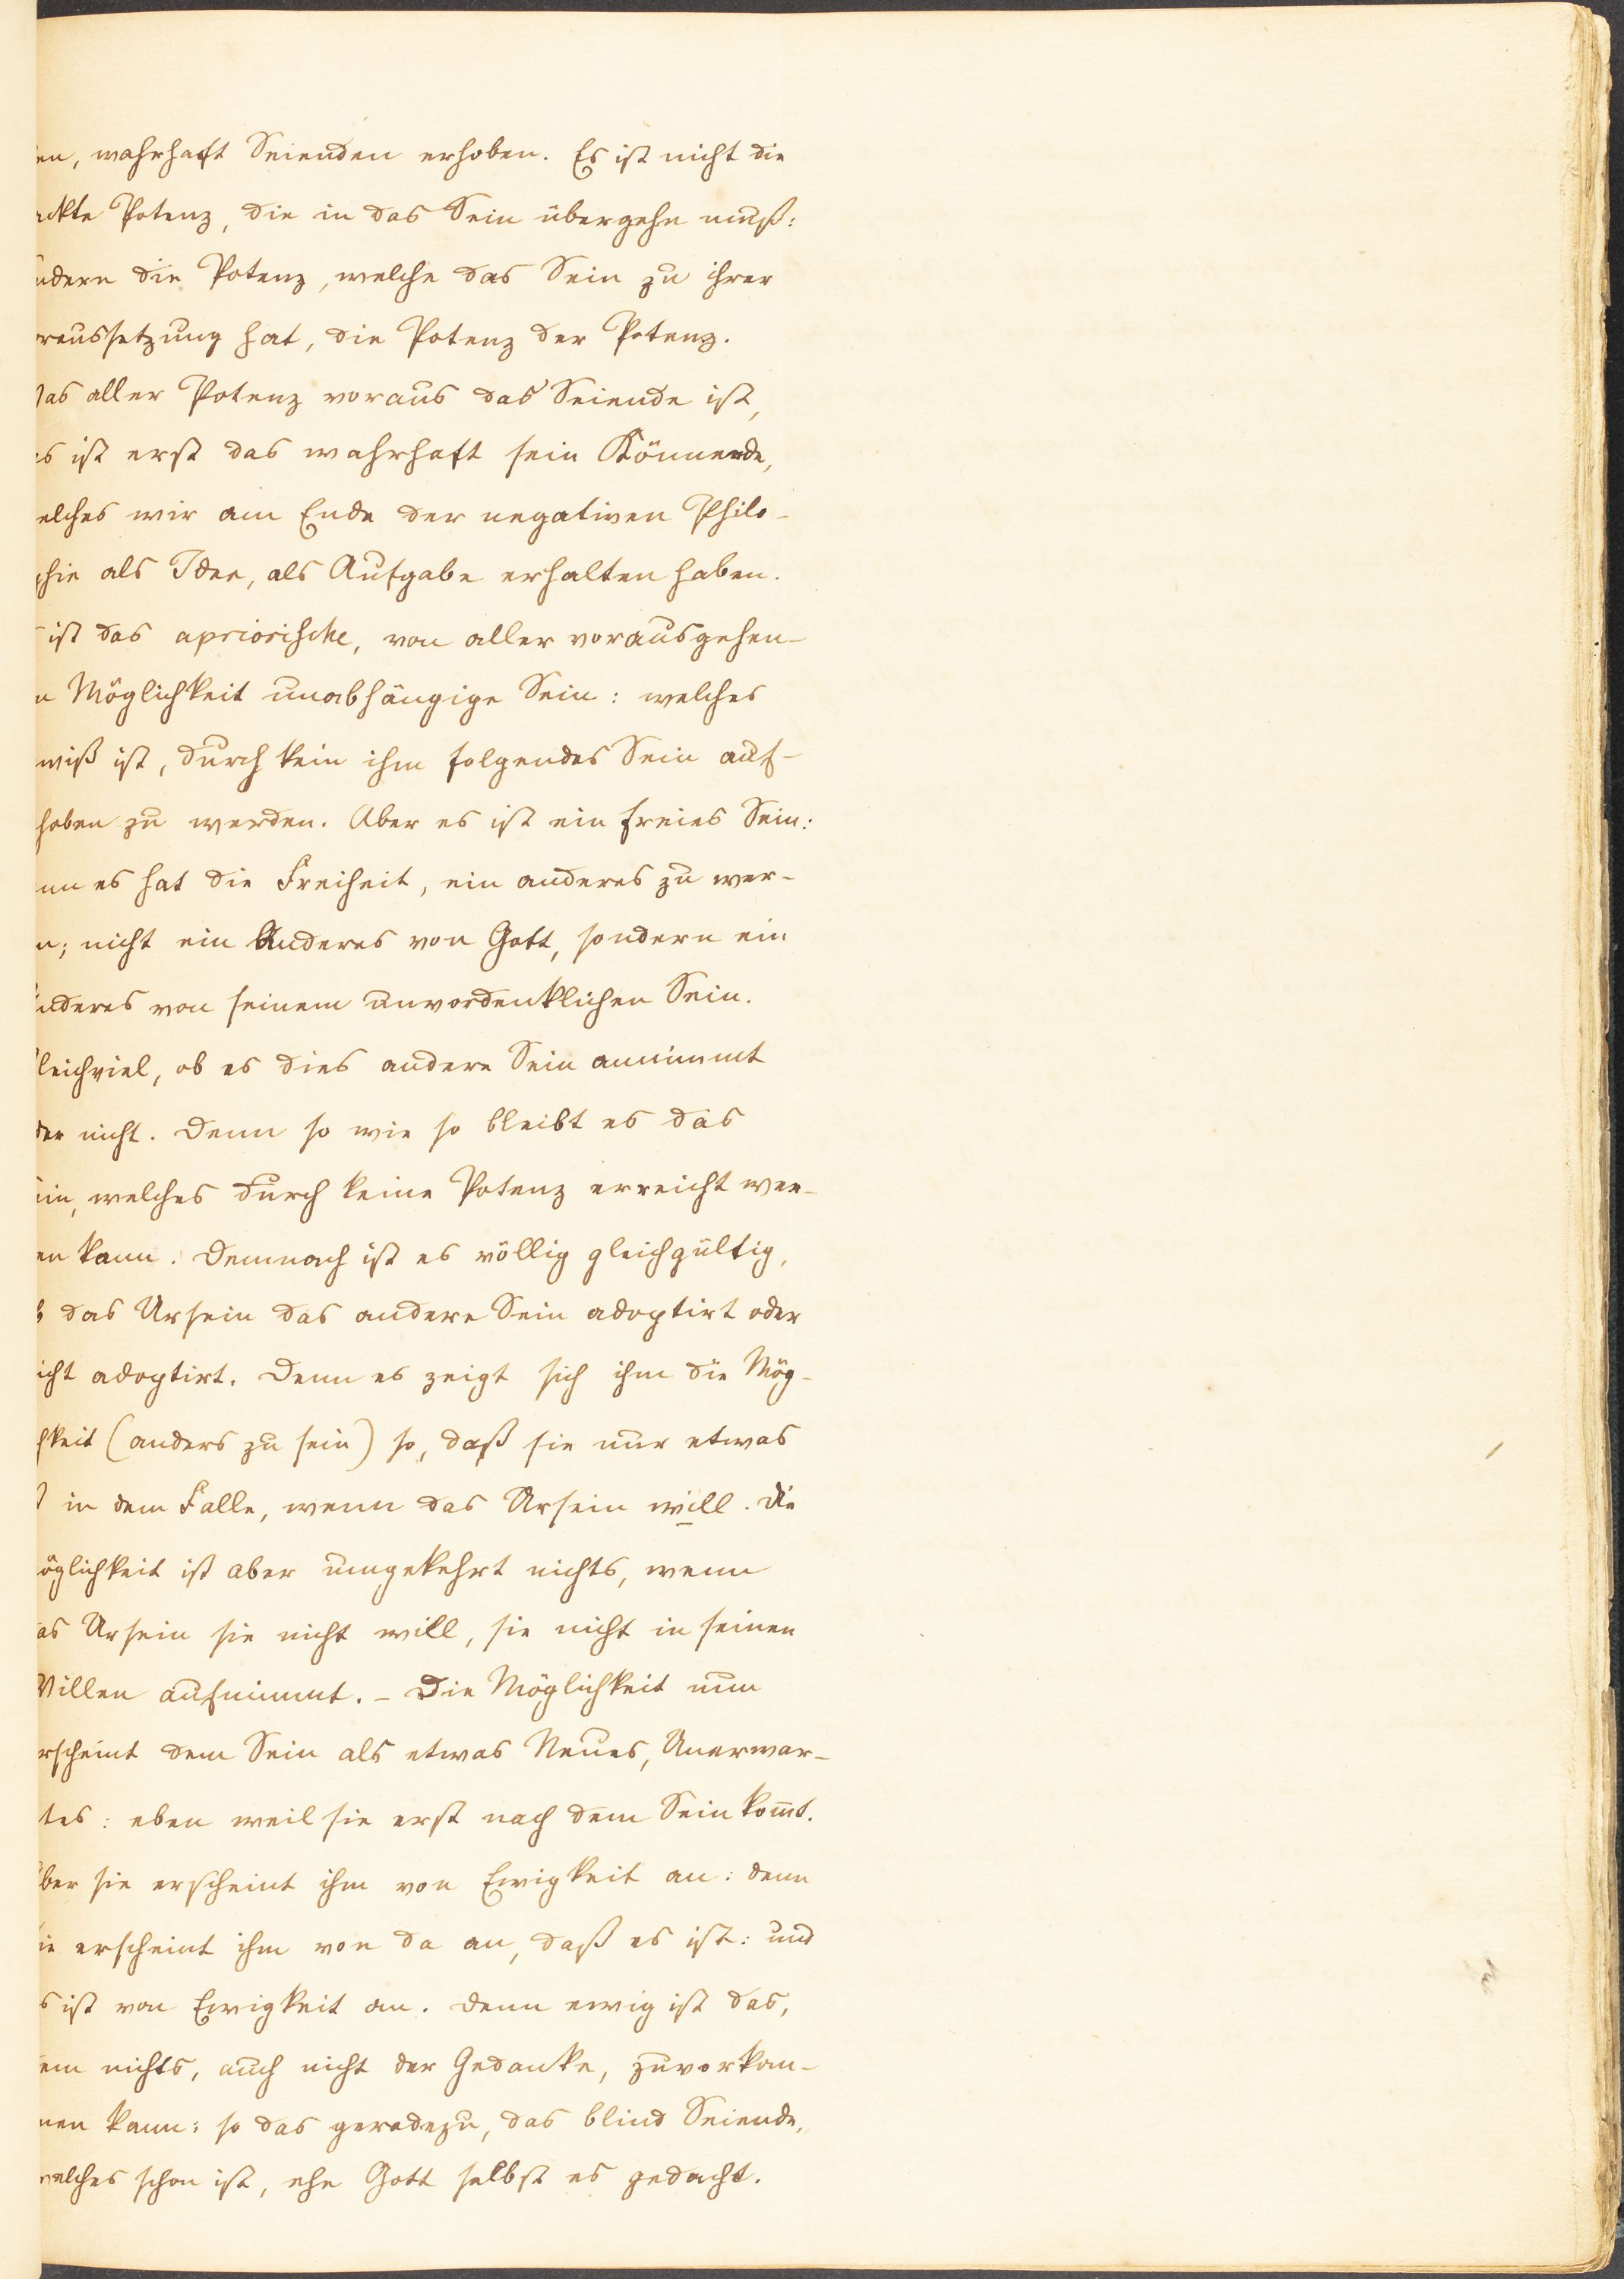 en, wahrhaft Seienden erhoben. Es ist nicht die
ckte Potenz, die in das Sein übergehn muß:
ndern die Potenz, welche das Sein zu ihrer
raussetzung hat, die Potenz der Potenz.
as aller Potenz voraus das Seiende ist,
es ist erst das wahrhaft sein Könnende,
elches wir am Ende der negativen Philo-
phie als Idee, als Aufgabe erhalten haben.
ist das apriorische, von aller vorausgehen-
n Möglichkeit unabhängige Sein: welches
wiß ist, durch kein ihm folgendes Sein auf-
hoben zu werden. Aber es ist ein freies Sein:
nn es hat die Freiheit, ein anderes zu wer-
n; nicht ein Anderes von Gott, sondern ein
nderes von seinem unvordenklichen Sein.
leichviel, ob es dies andere Sein annimmt
der nicht. Denn so wie so bleibt es das
ein, welches durch keine Potenz erreicht wer-
en kann. Demnach ist es völlig gleichgültig,
b das Ursein das andere Sein adoptirt oder
icht adoptirt. Denn es zeigt sich ihm die Mög-
hkeit (anders zu sein) so, daß sie nur etwas
t in dem Falle, wenn das Ursein will. Die
öglichkeit ist aber umgekehrt nichts, wenn
as Ursein sie nicht will, sie nicht in seinen
Willen aufnimmt. – Die Möglichkeit nun
rscheint dem Sein als etwas Neues, Unerwar-
tes: eben weil sie erst nach dem Sein kom̄t.
ber sie erscheint ihm von Ewigkeit an: denn
ie erscheint ihm von da an, daß es ist: und
s ist von Ewigkeit an. Denn ewig ist das,
em nichts, auch nicht der Gedanke, zuvorkom-
men kann: so das geradezu, das blind Seiende,
welches schon ist, ehe Gott selbst es gedacht.